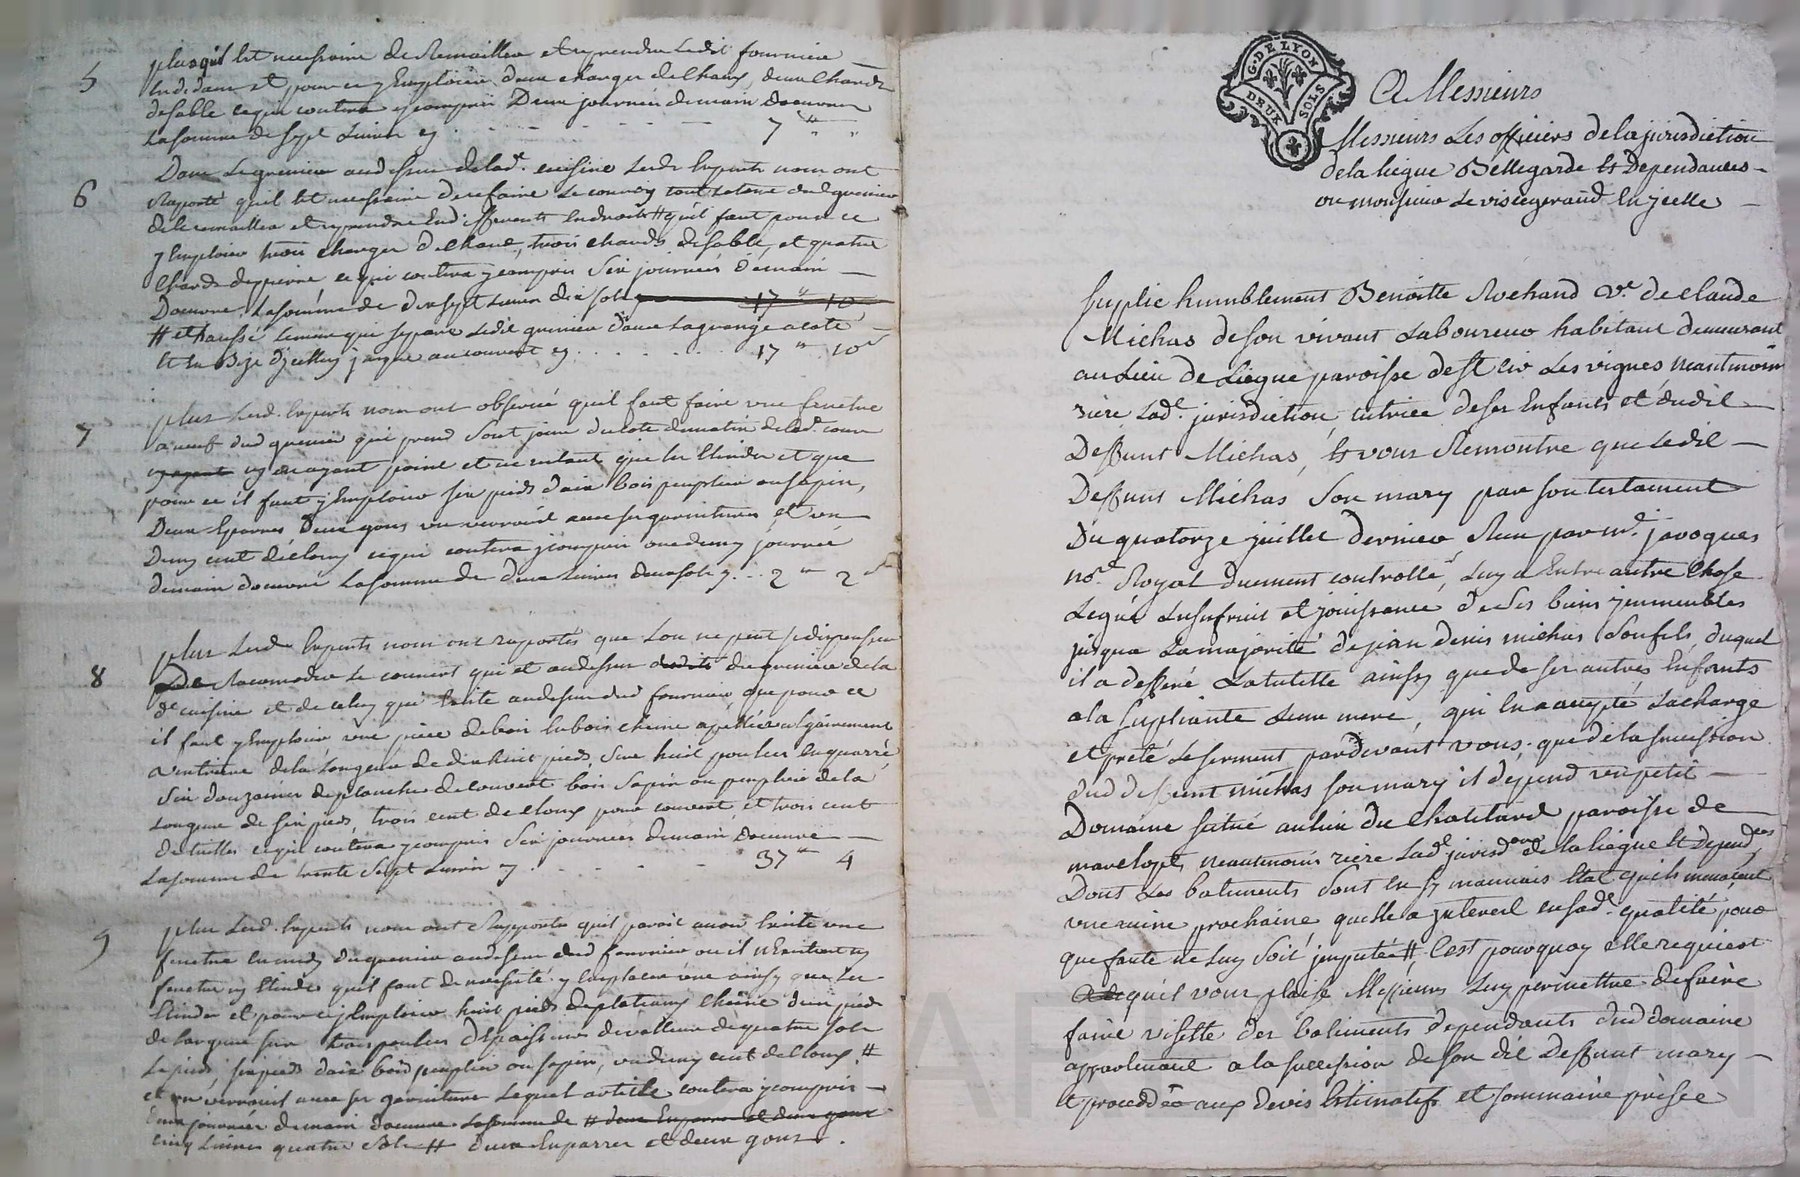 5
plus quil est necessaire de Remailler et reprendre Ledit fournier
du dedans et pour ce y Emploier deux charges de Chaux, deux Chards
de sable ce qui coutera y compris Deux journées demain doeuvre
La somme de sept Livres cy . . . 7 " "
6
Dans Le grenier au dessus de lad. cuisine Lesd. Experts nous ont
Raporté quil est necessaire de refaire Le
de Remailler et reprendre En differents Endroits # qu'il faut pour ce
y Emploier trois charges de chaux, trois chards de sable, et quatre
Chards de pierre, ce qui coutera y compris Six journées demain
Doeuvre, La somme de dix sept Livres dix sols 17 " 10
# et haussé Le mur qui separe Ledit grenier d'avec La grange a coté
17 " 10 s
7
plus Lesd. Experts nous ont observé qu'il faut faire une fenetre
a neuf dud grenier qui prend Son jour du coté de matin de lad. cour
ny en ayant point et ne restant que les Elindes et que
pour ce il faut y Emploier six pieds d'aix bois peuplier ou sapin,
Deux Eparres Deux gons un verrouil avec ses garnitures, et un
Demy cent de cloux ce qui coutera y compris une demy journée
demain doeuvre La somme de deux Livres deux sols cy . . 2 " 2 s
8
plus Lesd. Experts nous ont raportés que L'on ne peut se dispenser
De Racomoder Le couvert qui est au dessus du grenier de la
de cuisine et de celuy qui Existe au dessus dud fournier que pour ce
il faut y Emploier une piece de bois En bois chene apellée vulgairement
vintriere de la Longueur de dix huit pieds, Sur huit pouces En quarré
Six douzaines de planches de couvert bois Sapin ou peuplier de la
Longueur de six pieds, trois cent de cloux pour couvert, et trois cent
de tuilles ce qui coutera y compris Six journées demain doeuvre
La somme de trente Sept Livres cy . . . 37 " 4
9
plus Lesd. Experts nous ont Rapportés qu'il paroit avoir Existé une
fenetre du grenier au dessus dud fournier ou il n'Existe ny
fenetre ny Elindes quil faut de necessité y Emplacer une ainsy que Les
Elindes et pour ce y Emploier huit pieds de plateaux Chesne d'un pied
de largeur sur trois pouces D'Epaisseur de valleur de quatre sols
Le pied, six pieds d'aix bois peuplier ou sapin, un demy cent de cloux, #
et un verrouil avec ses garnitures Lequel article coutera y compris
deux journées demain doeuvre La somme de # deux Eparres et deux gons
cinq Livres quatre Sols # deux Enparres et deux gons .
G. DE LYON
DEUX SOLS
A Messieurs
Messieurs Les officiers de la jurisdiction
de la Liegue Bellegarde Et Dependances
ou monsieur Le vise gerand En jcelle
Suplie humblement Benoitte Rochand Ve. de Claude
Michas de son vivant Laboureur habitant demeurant
au Lieu de Liegue paroisse de St Cir Les vignes neantmoins
riere Lad. jurisdiction, tutrice de ses Enfants et dudit
Deffunt Michas, Et vous Remontre que Ledit
Deffunt Michas Son mary par son testament
Du quatorze juillet dernier Reçu par me. javogues
nore. Royal duement controllé, Luy a Entre autre Chose
Legué Lusufruit et jouissance de Ses biens ymmeubles
jusqua La majorité de jean denis michas Son fils, duquel
il a defferé La tutelle ainsy que de ses autres Enfants
a la Supliante Leur mere, qui En a accepté La charge
et preté Le serment pardevant vous, que de la succession
dud deffunt michas son mary il depend un petit
Domaine situé au Lieu du Chatelard paroisse de
marclopt neantmoins riere Lad. jurisdon. de la Liegue Et Depend.ces
Dont Les batiments Sont En Sy mauvais Etat qu'ils menacent
une ruine prochaine, quelle a jnterest En sad. qualité pour
que faute ne Luy Soit jmputée #, C'est pourquoy Elle requiert
qu'il vous plaise Messieurs Luy permettre de faire
faire visitte des batiments dependants dud domaine
appartenant a la succession de Son dit Deffunt mary
et proceder aux devis Estimatifs et sommaire prisée